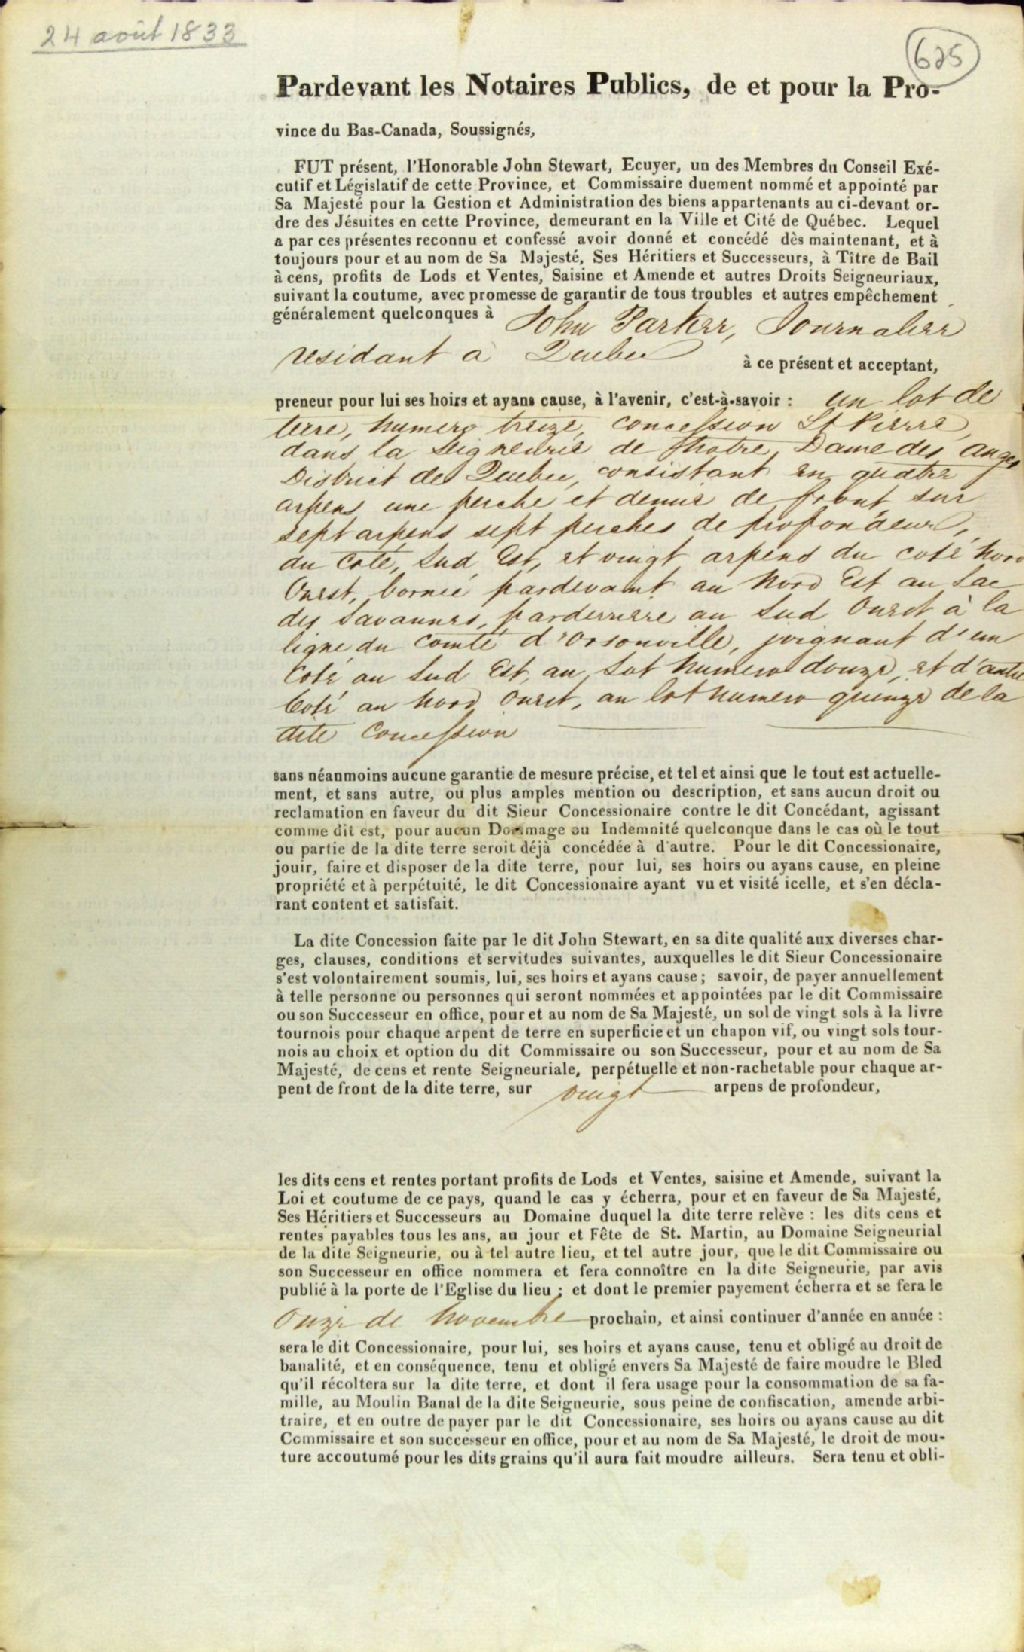 24 août 1833
625
Pardevant les Notaires Publics, de et pour la Pro-
vince du Bas-Canada, Soussignés,
FUT présent, l'Honorable John Stewart, Ecuyer, un des Membres du Conseil Exé-
cutif et Législatif de cette Province, et Commissaire duement nommé et appointé par
Sa Majesté pour la Gestion et Administration des biens appartenants au ci-devant or-
dre des Jésuites en cette Province, demeurant en la Ville et Cité de Québec. Lequel
a par ces présentes reconnu et confessé avoir donné et concédé dès maintenant, et à
toujours pour et au nom de Sa Majesté, Ses Héritiers et Successeurs, à Titre de Bail
à cens, profits de Lods et Ventes, Saisine et Amende et autres Droits Seigneuriaux,
suivant la coutume, avec promesse de garantir de tous troubles et autres empêchement
généralement quelconques à John Parker, Journalier
residant à Quebec à ce présent et acceptant,
preneur pour lui ses hoirs et ayans cause, à l'avenir, c'est-à-savoir : un lot de
terre, numero treize, concession St Pierre,
dans la Seigneurie de Notre Dame des anges
District de Quebec, consistant en quatre
arpens une perche et demie de front sur
sept arpens sept perches de profondeur,
du coté, Sud Est, et vingt arpens du coté Nord
Ouest, bornée pardevant au Nord Est au Lac
des Savannes, parderriere au Sud Ouest à la
ligne du comté d'Orsonville, joignant d'un
Coté au Sud Est, au Lot numero douze, et d'autre
Coté au Nord Ouest, au lot numero quinze de la
dite Concession
sans néanmoins aucune garantie de mesure précise, et tel et ainsi que le tout est actuelle-
ment, et sans autre, ou plus amples mention ou description, et sans aucun droit ou
reclamation en faveur du dit Sieur Concessionaire contre le dit Concédant, agissant
comme dit est, pour aucun Dommage ou Indemnité quelconque dans le cas où le tout
ou partie de la dite terre seroit déjà concédée à d'autre. Pour le dit Concessionaire,
jouir, faire et disposer de la dite terre, pour lui, ses hoirs ou ayans cause, en pleine
propriété et à perpétuité, le dit Concessionaire ayant vu et visité icelle, et s'en décla-
rant content et satisfait.
La dite Concession faite par le dit John Stewart, en sa dite qualité aux diverses char-
ges, clauses, conditions et servitudes suivantes, auxquelles le dit Sieur Concessionaire
s'est volontairement soumis, lui, ses hoirs et ayans cause ; savoir, de payer annuellement
à telle personne ou personnes qui seront nommées et appointées par le dit Commissaire
ou son Successeur en office, pour et au nom de Sa Majesté, un sol de vingt sols à la livre
tournois pour chaque arpent de terre en superficie et un chapon vif, ou vingt sols tour-
nois au choix et option du dit Commissaire ou son Successeur, pour et au nom de Sa
Majesté, de cens et rente Seigneuriale, perpétuelle et non-rachetable pour chaque ar-
pent de front de la dite terre, sur vingt arpens de profondeur,
les dits cens et rentes portant profits de Lods et Ventes, saisine et Amende, suivant la
Loi et coutume de ce pays, quand le cas y écherra, pour et en faveur de Sa Majesté,
Ses Héritiers et Successeurs au Domaine duquel la dite terre relève : les dits cens et
rentes payables tous les ans, au jour et Fête de St. Martin, au Domaine Seigneurial
de la dite Seigneurie, ou à tel autre lieu, et tel autre jour, que le dit Commissaire ou
son Successeur en office nommera et fera connoître en la dite Seigneurie, par avis
publié à la porte de l'Eglise du lieu ; et dont le premier payement écherra et se fera le
Onze de Novembre prochain, et ainsi continuer d'année en année :
sera le dit Concessionaire, pour lui, ses hoirs et ayans cause, tenu et obligé au droit de
banalité, et en conséquence, tenu et obligé envers Sa Majesté de faire moudre le Bled
qu'il récoltera sur la dite terre, et dont il fera usage pour la consommation de sa fa-
mille, au Moulin Banal de la dite Seigneurie, sous peine de confiscation, amende arbi-
traire, et en outre de payer par le dit Concessionaire, ses hoirs ou ayans cause au dit
Commissaire et son successeur en office, pour et au nom de Sa Majesté, le droit de mou-
ture accoutumé pour les dits grains qu'il aura fait moudre ailleurs. Sera tenu et obli-